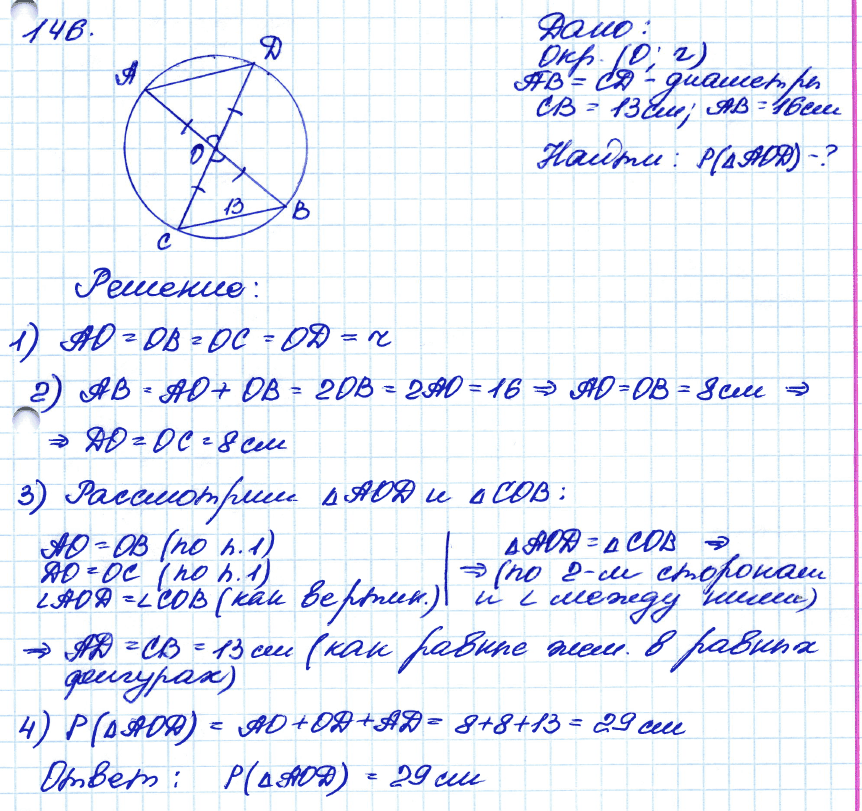 146.
Дано:
Окр. (О; r)
AB = CD - диаметры
CB = 13 см; AB = 16 см
Найти: P(△AOD) - ?
A
D
O
13
B
C
Решение:
1) AO = OB = OC = OD = r
2) AB = AO + OB = 2OB = 2AO = 16 ⇒ AO = OB = 8 см ⇒
⇒ DO = OC = 8 см
3) Рассмотрим △AOD и △COB:
AO = OB (по п.1)
DO = OC (по п.1)
∠AOD = ∠COB (как вертик.)
△AOD = △COB ⇒
⇒ (по 2-м сторонам
и ∠ между ними)
⇒ AD = CB = 13 см (как равные эл. в равных
фигурах)
4) P(△AOD) = AO + OD + AD = 8 + 8 + 13 = 29 см
Ответ: P(△AOD) = 29 см